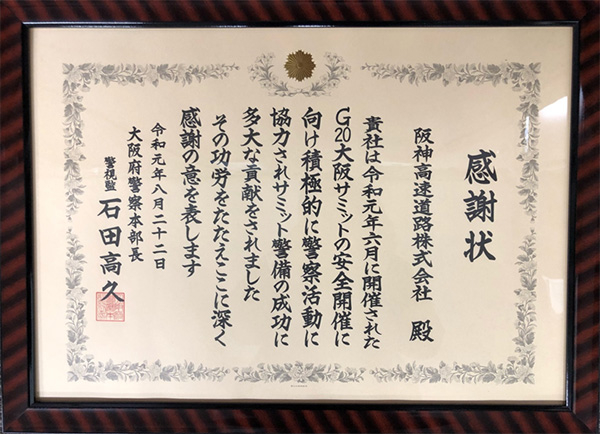 感謝状
阪神高速道路株式会社 殿
貴社は令和元年六月に開催された
G20大阪サミットの安全開催に
向け積極的に警察活動に
協力されサミット警備の成功に
多大な貢献をされました
その功労をたたえここに深く
感謝の意を表します
令和元年八月二十二日
大阪府警察本部長
警視監 石田高久